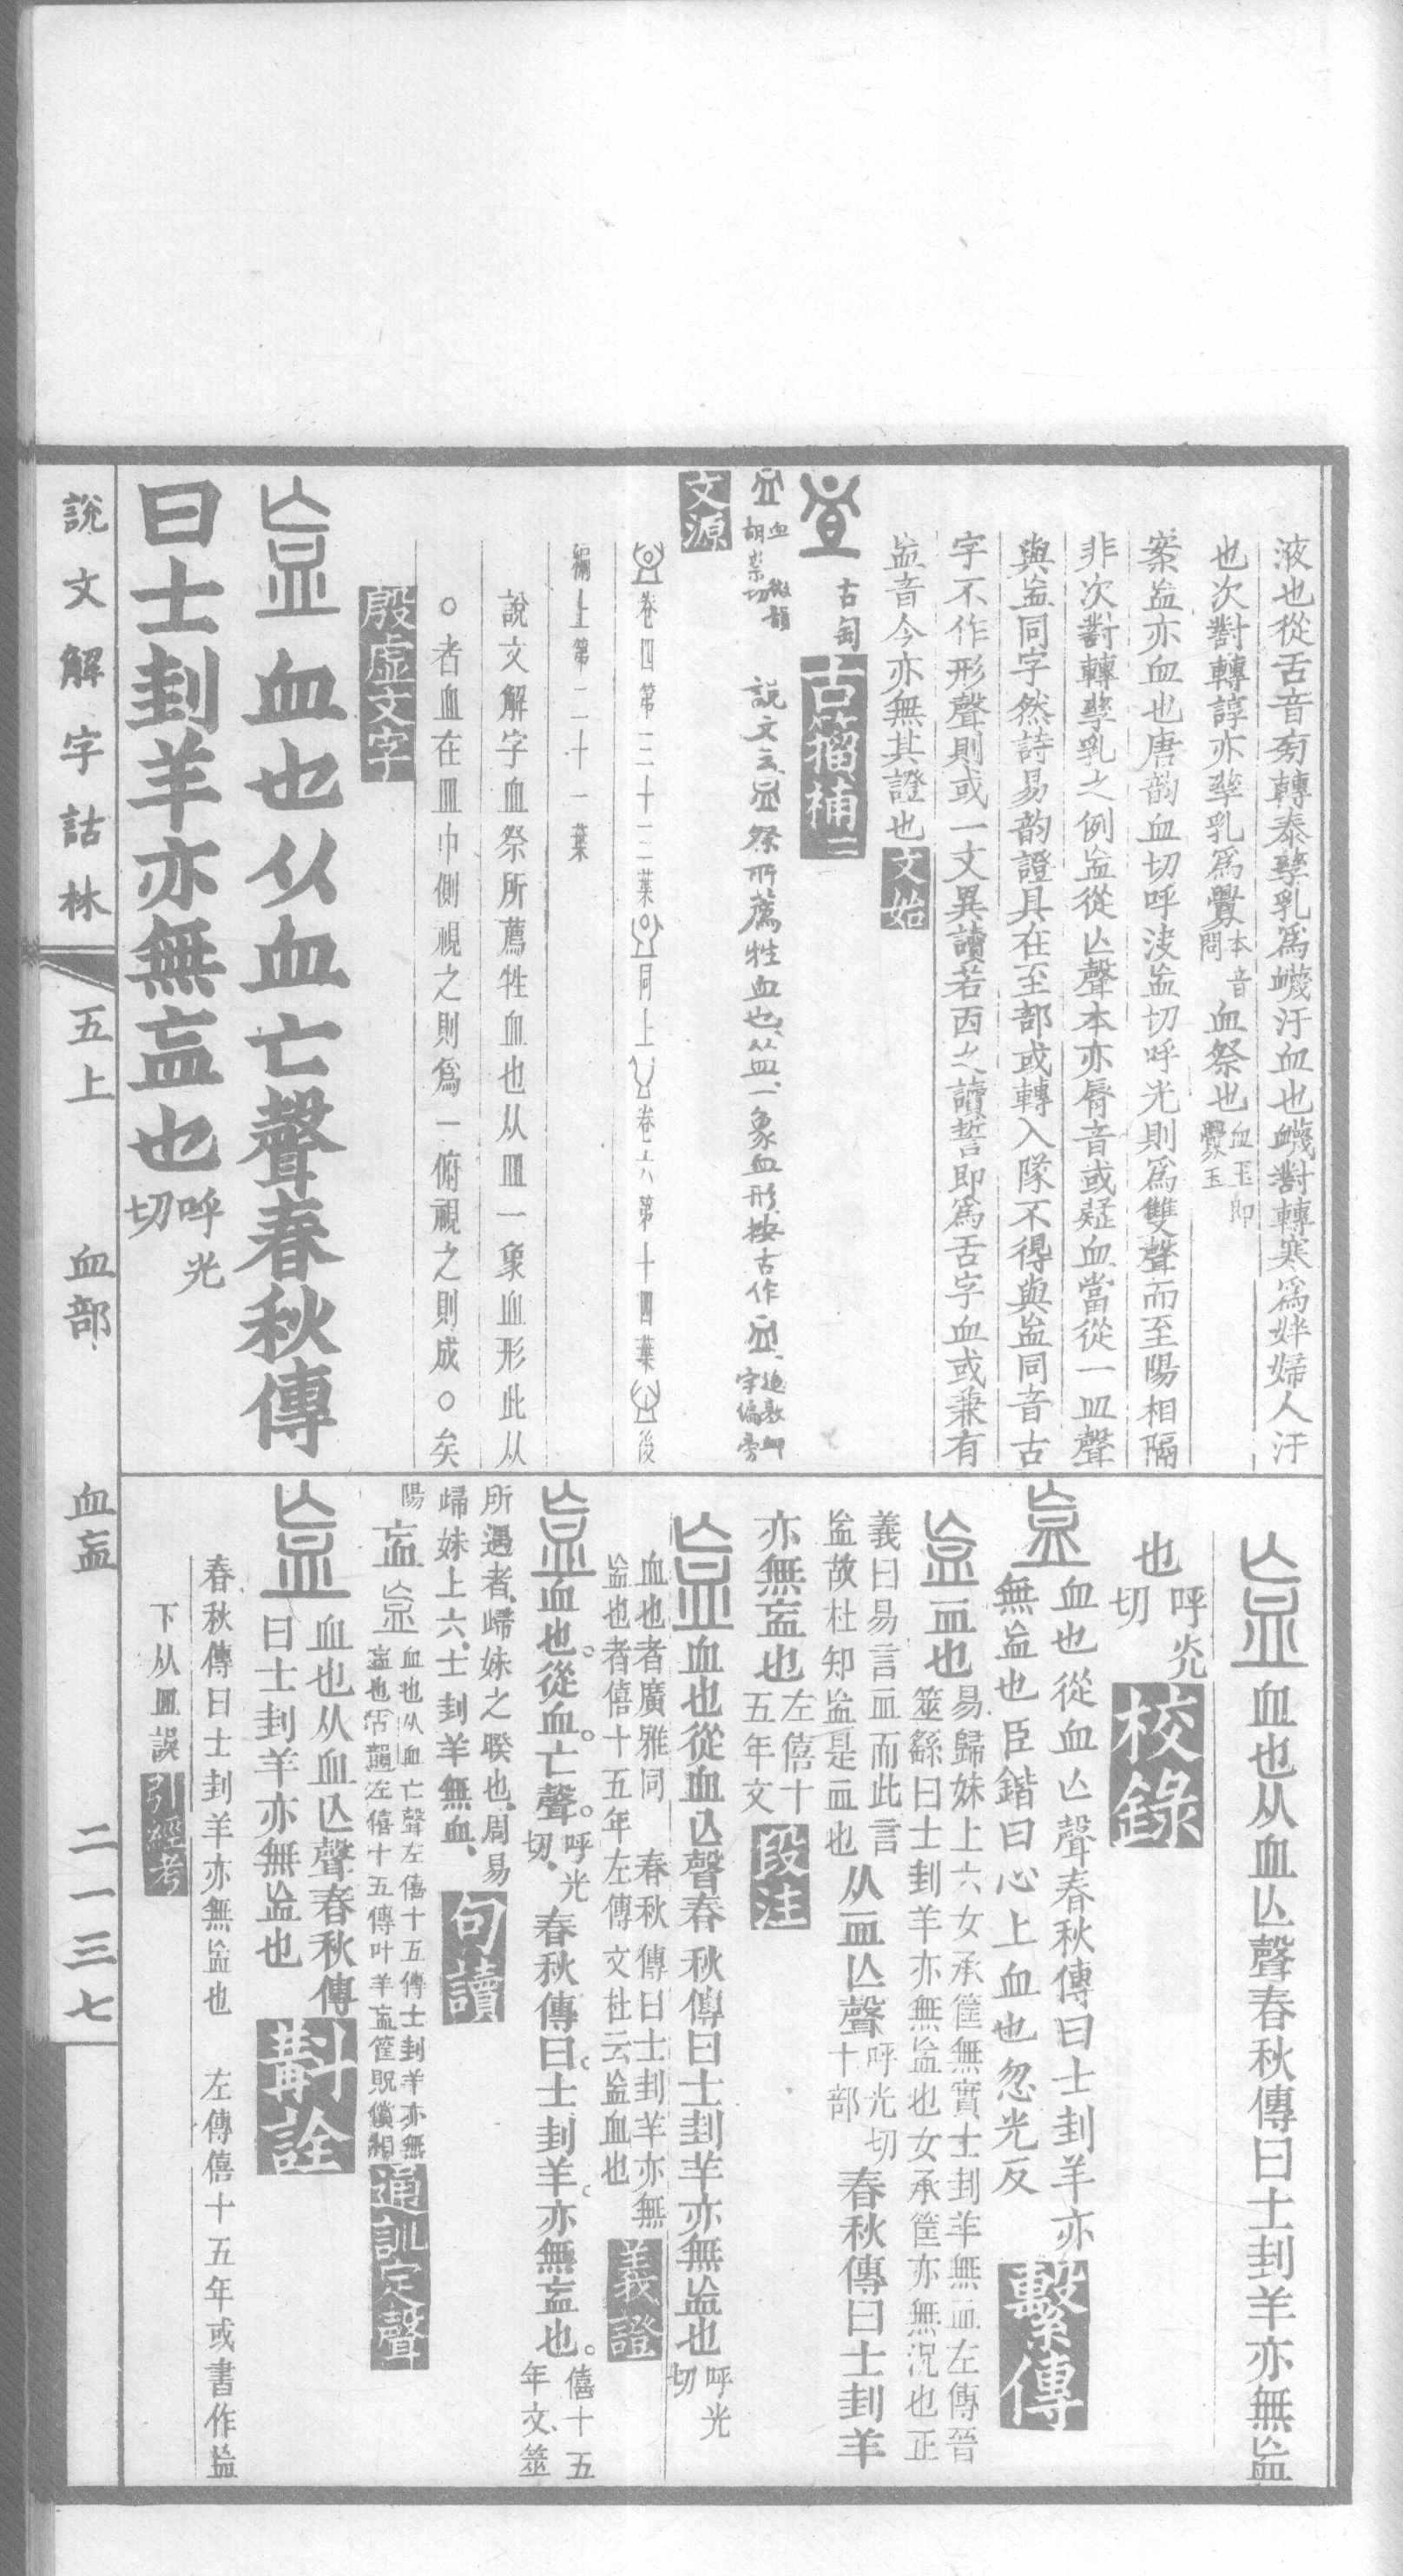 液也從舌音旁轉泰孳乳為衊汙血也衊對轉寒為姅婦人汙
也次對轉諄亦孳乳為釁本音問血祭也
案衁亦血也唐韵血切呼決衁切呼光則為雙聲而至陽相隔
非次對轉孳乳之例衁從亾聲本亦脣音或疑血當從一皿聲
與衁同字然詩易韵證具在至部或轉入隊不得與衁同音古
字不作形聲則或一文異讀若㐁之讀誓即為舌字血或兼有
衁音今亦無其證也文始
古匋古籀補二
血胡決切微韻 說文云血祭所薦牲血也从皿一象血形按古作
文源
卷四第三十二葉 同上 卷六第十四葉 後
編上第二十一葉
說文解字血祭所薦牲血也从皿一象血形此从
○者血在皿中側視之則為一俯視之則成○矣
殷虛文字
衁 血也从血亡聲春秋傳
曰士刲羊亦無衁也呼光切
衁 血也从血亾聲春秋傳曰士刲羊亦無衁
也呼光切校錄
衁 血也從血亾聲春秋傳曰士刲羊亦
無衁也臣鍇曰心上血也忽光反繫傳
衁 血也易歸妹上六女承筐無實士刲羊無血左傳晉
筮繇曰士刲羊亦無衁也女承筐亦無況也正
義曰易言血而此言
衁故杜知衁是血也从血亾聲呼光切十部春秋傳曰士刲羊
亦無衁也左僖十五年文段注
衁 血也從血亾聲春秋傳曰士刲羊亦無衁也呼光切
血也者廣雅同 春秋傳曰士刲羊亦無
衁也者僖十五年左傳文杜云衁血也義證
衁 血也。從血。亡聲。呼光切、春秋傳曰。士刲羊。亦無衁也。僖十五年文、筮
所遇者、歸妹之睽也、周易
歸妹上六、士刲羊無血、句讀
陽衁 血也从血亡聲左僖十五傳士刲羊亦無
衁也古韻左僖十五傳叶羊衁筐貺償相通訓定聲
衁 血也从血亾聲春秋傳
曰士刲羊亦無衁也斠詮
春秋傳曰士刲羊亦無衁也 左傳僖十五年或書作衁
下从皿誤引經考
說文解字詁林 五上 血部 血衁 二一三七